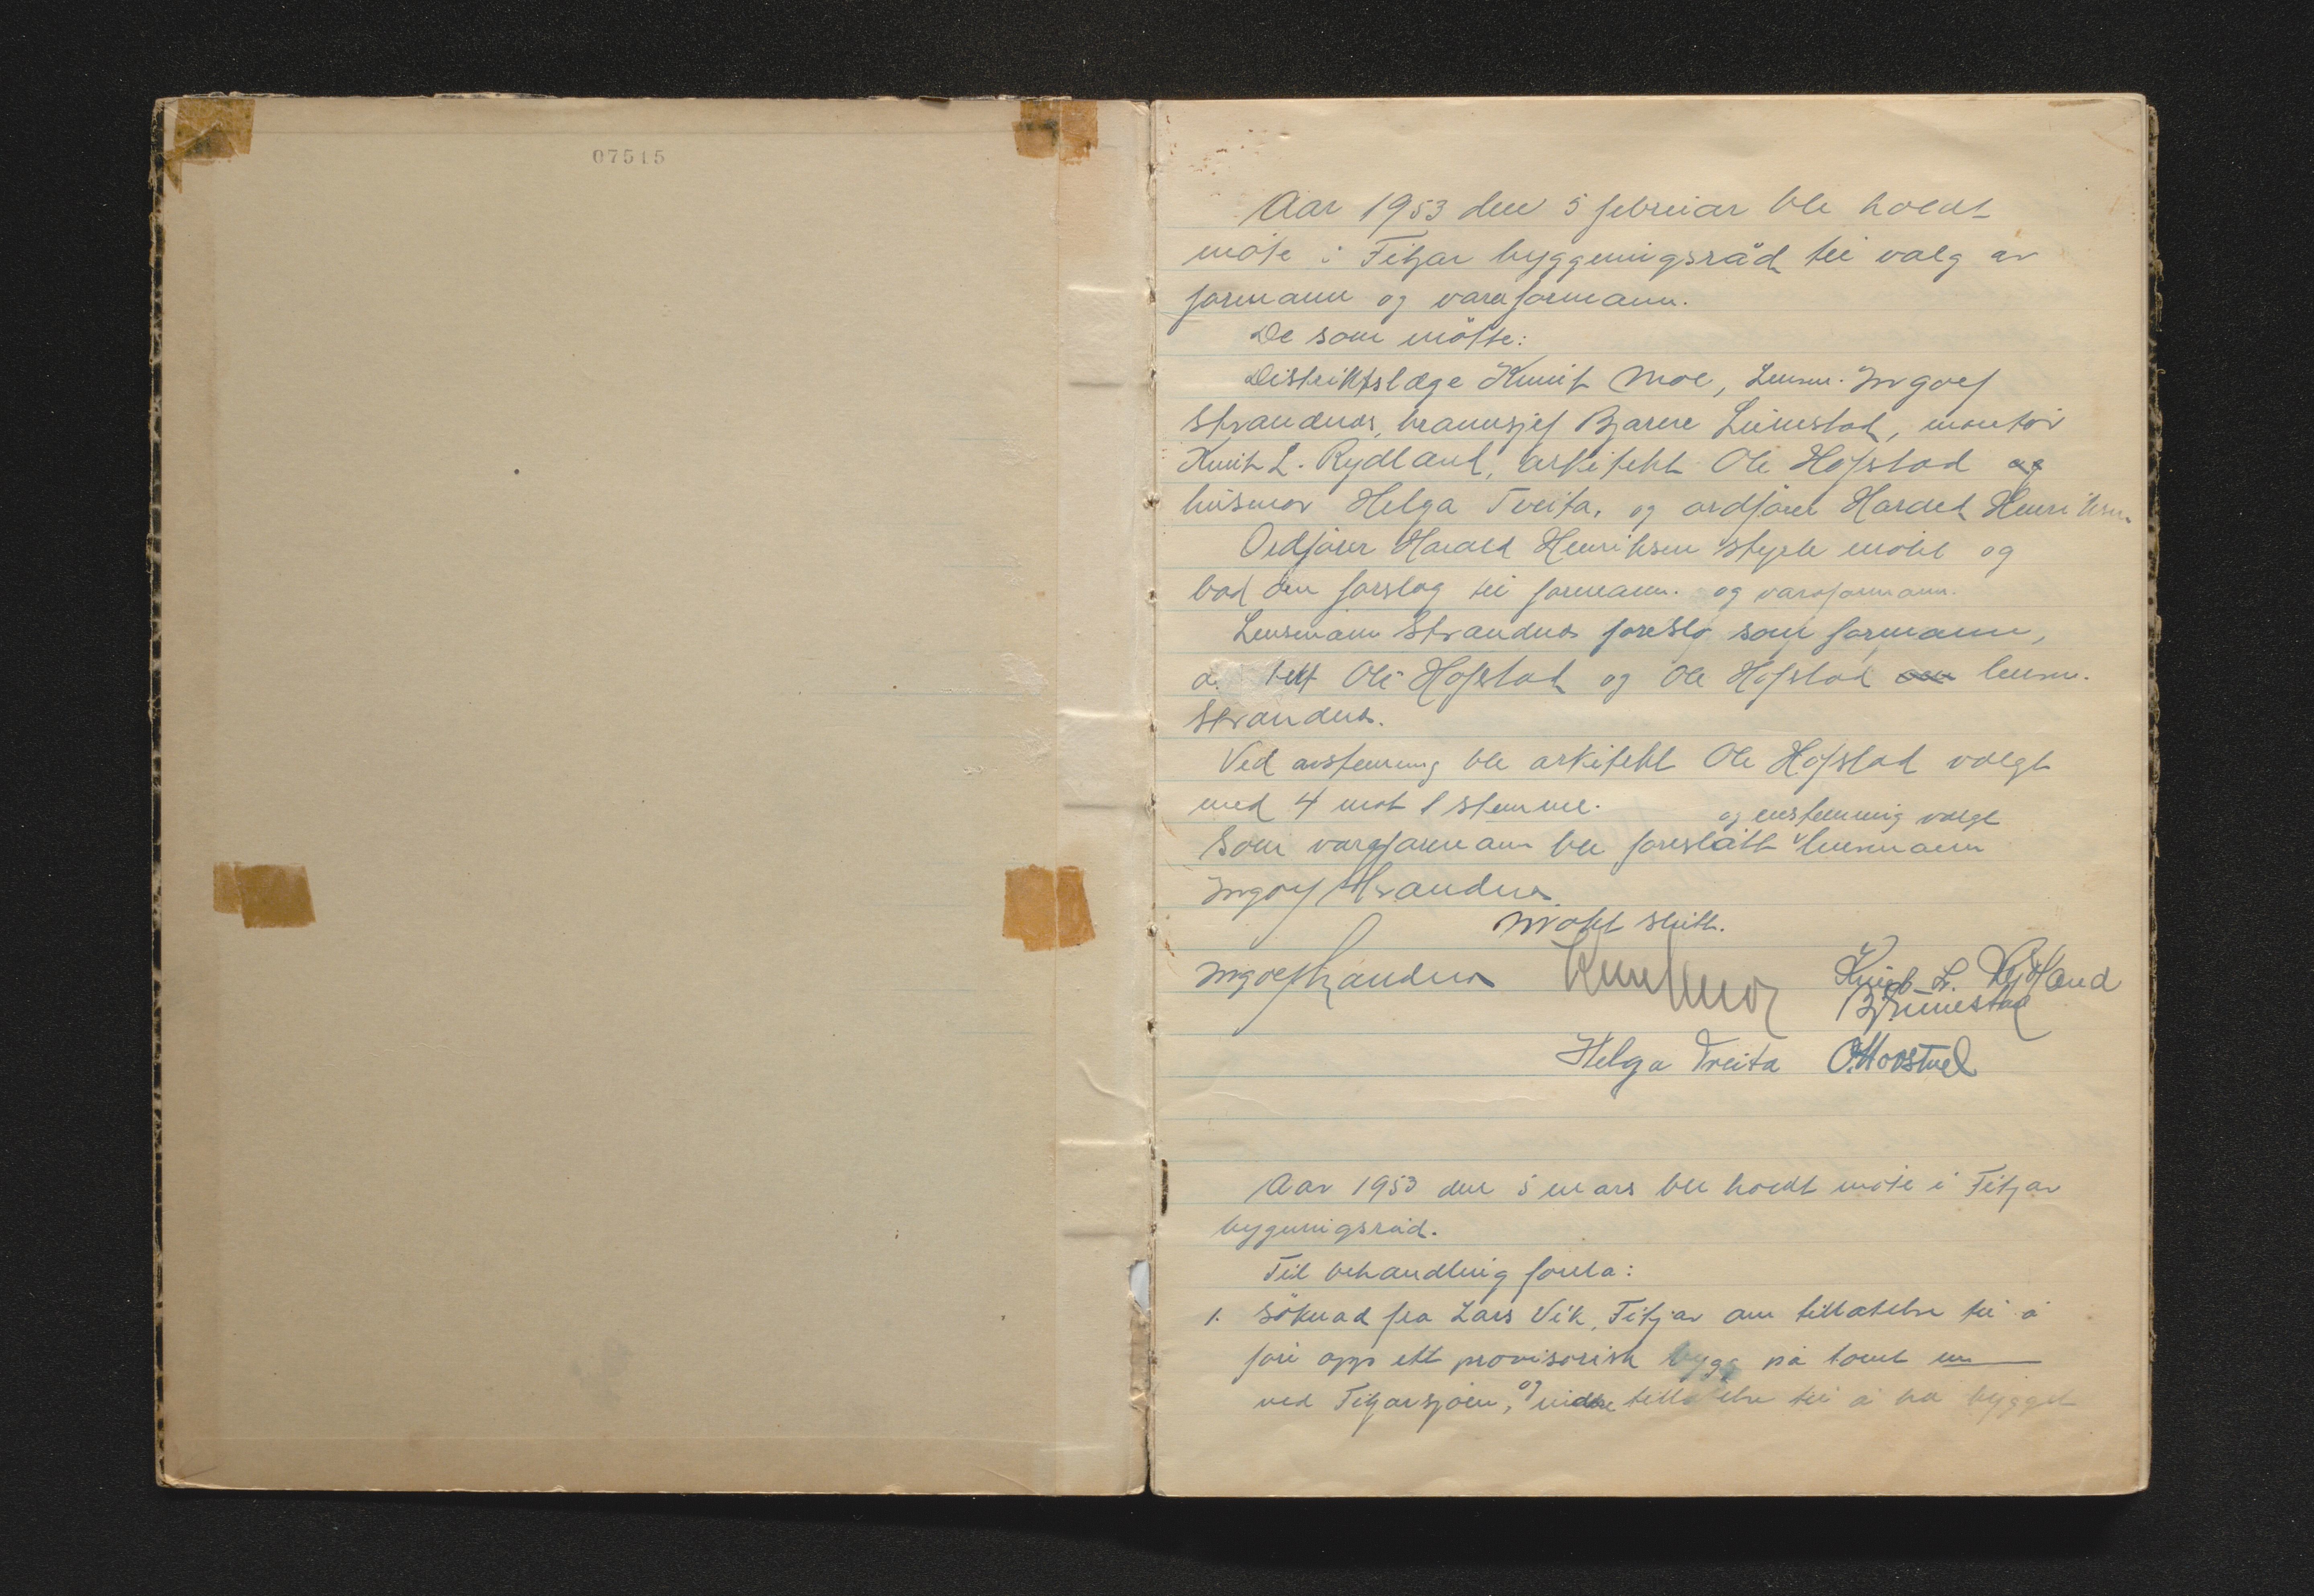 07515
Aar 1953 den 5 februar ble holdt
möte i Fitjar byggeningsråd til valg av
formann og varaformann.
De som mötte:
Distriktslæge Knut Moe, Lensm. Ingolf
Strandnes, brannsjef Bjarne Rimestad, montör
Knut L. Rydland, arkitekt Ole Hofstad og
husmor Helga Tveita, og ordförer Harald Henriksen.
Ordförer Harald Henriksen styrte mötet og
bad om forslag til formann. og varaformann.
Lensmann Strandnes foreslo som formann,
Ole Hofstad og Ole Hofstad lensm.
Strandnes.
Ved avstemning ble arkitekt Ole Hofstad valgt
med 4 mot 1 stemme.
og enstemmig valgt
Som varaformann ble foreslått lensmann
Ingolf Strandnes
Mötet slutt.
Ingolf Strandnes Knut Moe Knut L. Rydland
B. Rimestad
Helga Tveita O. Hovstad
Aar 1953 den 5 mars ble holdt möte i Fitjar
bygningsråd.
Til behandling forela:
1. Söknad fra Lars Vik, Fitjar om tillatelse til å
före opp ett provisorisk bygg på tomt
ved Fitjarsjöen, og videre tillatelse til å ha bygget